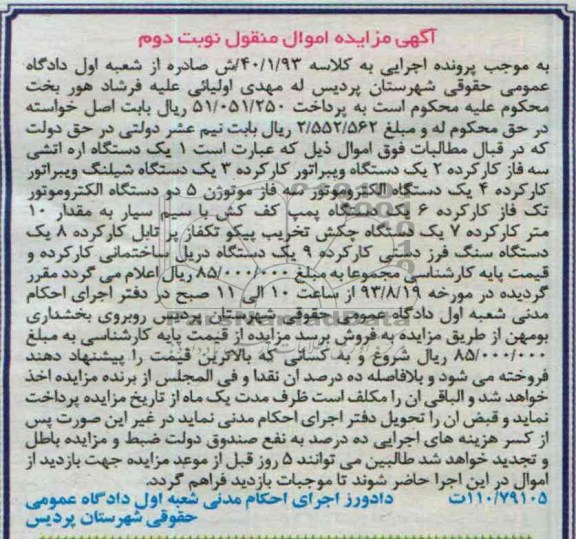 آگهی مزایده اموال منقول نوبت دوم
به موجب پرونده اجرایی به کلاسه ۴۰/۱/۹۳/ش صادره از شعبه اول دادگاه
عمومی حقوقی شهرستان پردیس له مهدی اولیائی علیه فرشاد هور بخت
محکوم علیه محکوم است به پرداخت ۵۱/۰۵۱/۲۵۰ ریال بابت اصل خواسته
در حق محکوم له و مبلغ ۲/۵۵۲/۵۶۲ ریال بابت نیم عشر دولتی در حق دولت
که در قبال مطالبات فوق اموال ذیل که عبارت است ۱ یک دستگاه اره اتشی
سه فاز کارکرده ۲ یک دستگاه ویبراتور کارکرده ۳ یک دستگاه شیلنگ ویبراتور
کارکرده ۴ یک دستگاه الکتروموتور سه فاز موتوژن ۵ دو دستگاه الکتروموتور
تک فاز کارکرده ۶ یک دستگاه پمپ کف کش با سیم سیار به مقدار ۱۰
متر کارکرده ۷ یک دستگاه چکش تخریب پیکو تکفاز پر تابل کارکرده ۸ یک
دستگاه سنگ فرز دستی کارکرده ۹ یک دستگاه دریل ساختمانی کارکرده و
قیمت پایه کارشناسی مجموعا به مبلغ ۸۵/۰۰۰/۰۰۰ ریال اعلام می گردد مقرر
گردیده در مورخه ۹۳/۸/۱۹ از ساعت ۱۰ الی ۱۱ صبح در دفتر اجرای احکام
مدنی شعبه اول دادگاه عمومی حقوقی شهرستان پردیس روبروی بخشداری
بومهن از طریق مزایده به فروش برسد مزایده از قیمت پایه کارشناسی به مبلغ
۸۵/۰۰۰/۰۰۰ ریال شروع و به کسانی که بالاترین قیمت را پیشنهاد دهند
فروخته می شود و بلافاصله ده درصد ان نقدا و فی المجلس از برنده مزایده اخذ
خواهد شد و الباقی ان را مکلف است ظرف مدت یک ماه از تاریخ مزایده پرداخت
نماید و قبض ان را تحویل دفتر اجرای احکام مدنی نماید در غیر این صورت پس
از کسر هزینه های اجرایی ده درصد به نفع صندوق دولت ضبط و مزایده باطل
و تجدید خواهد شد طالبین می توانند ۵ روز قبل از موعد مزایده جهت بازدید از
اموال در این اجرا حاضر شوند تا موجبات بازدید فراهم گردد.
۱۱۰/۷۹۱۰۵ت دادورز اجرای احکام مدنی شعبه اول دادگاه عمومی
حقوقی شهرستان پردیس